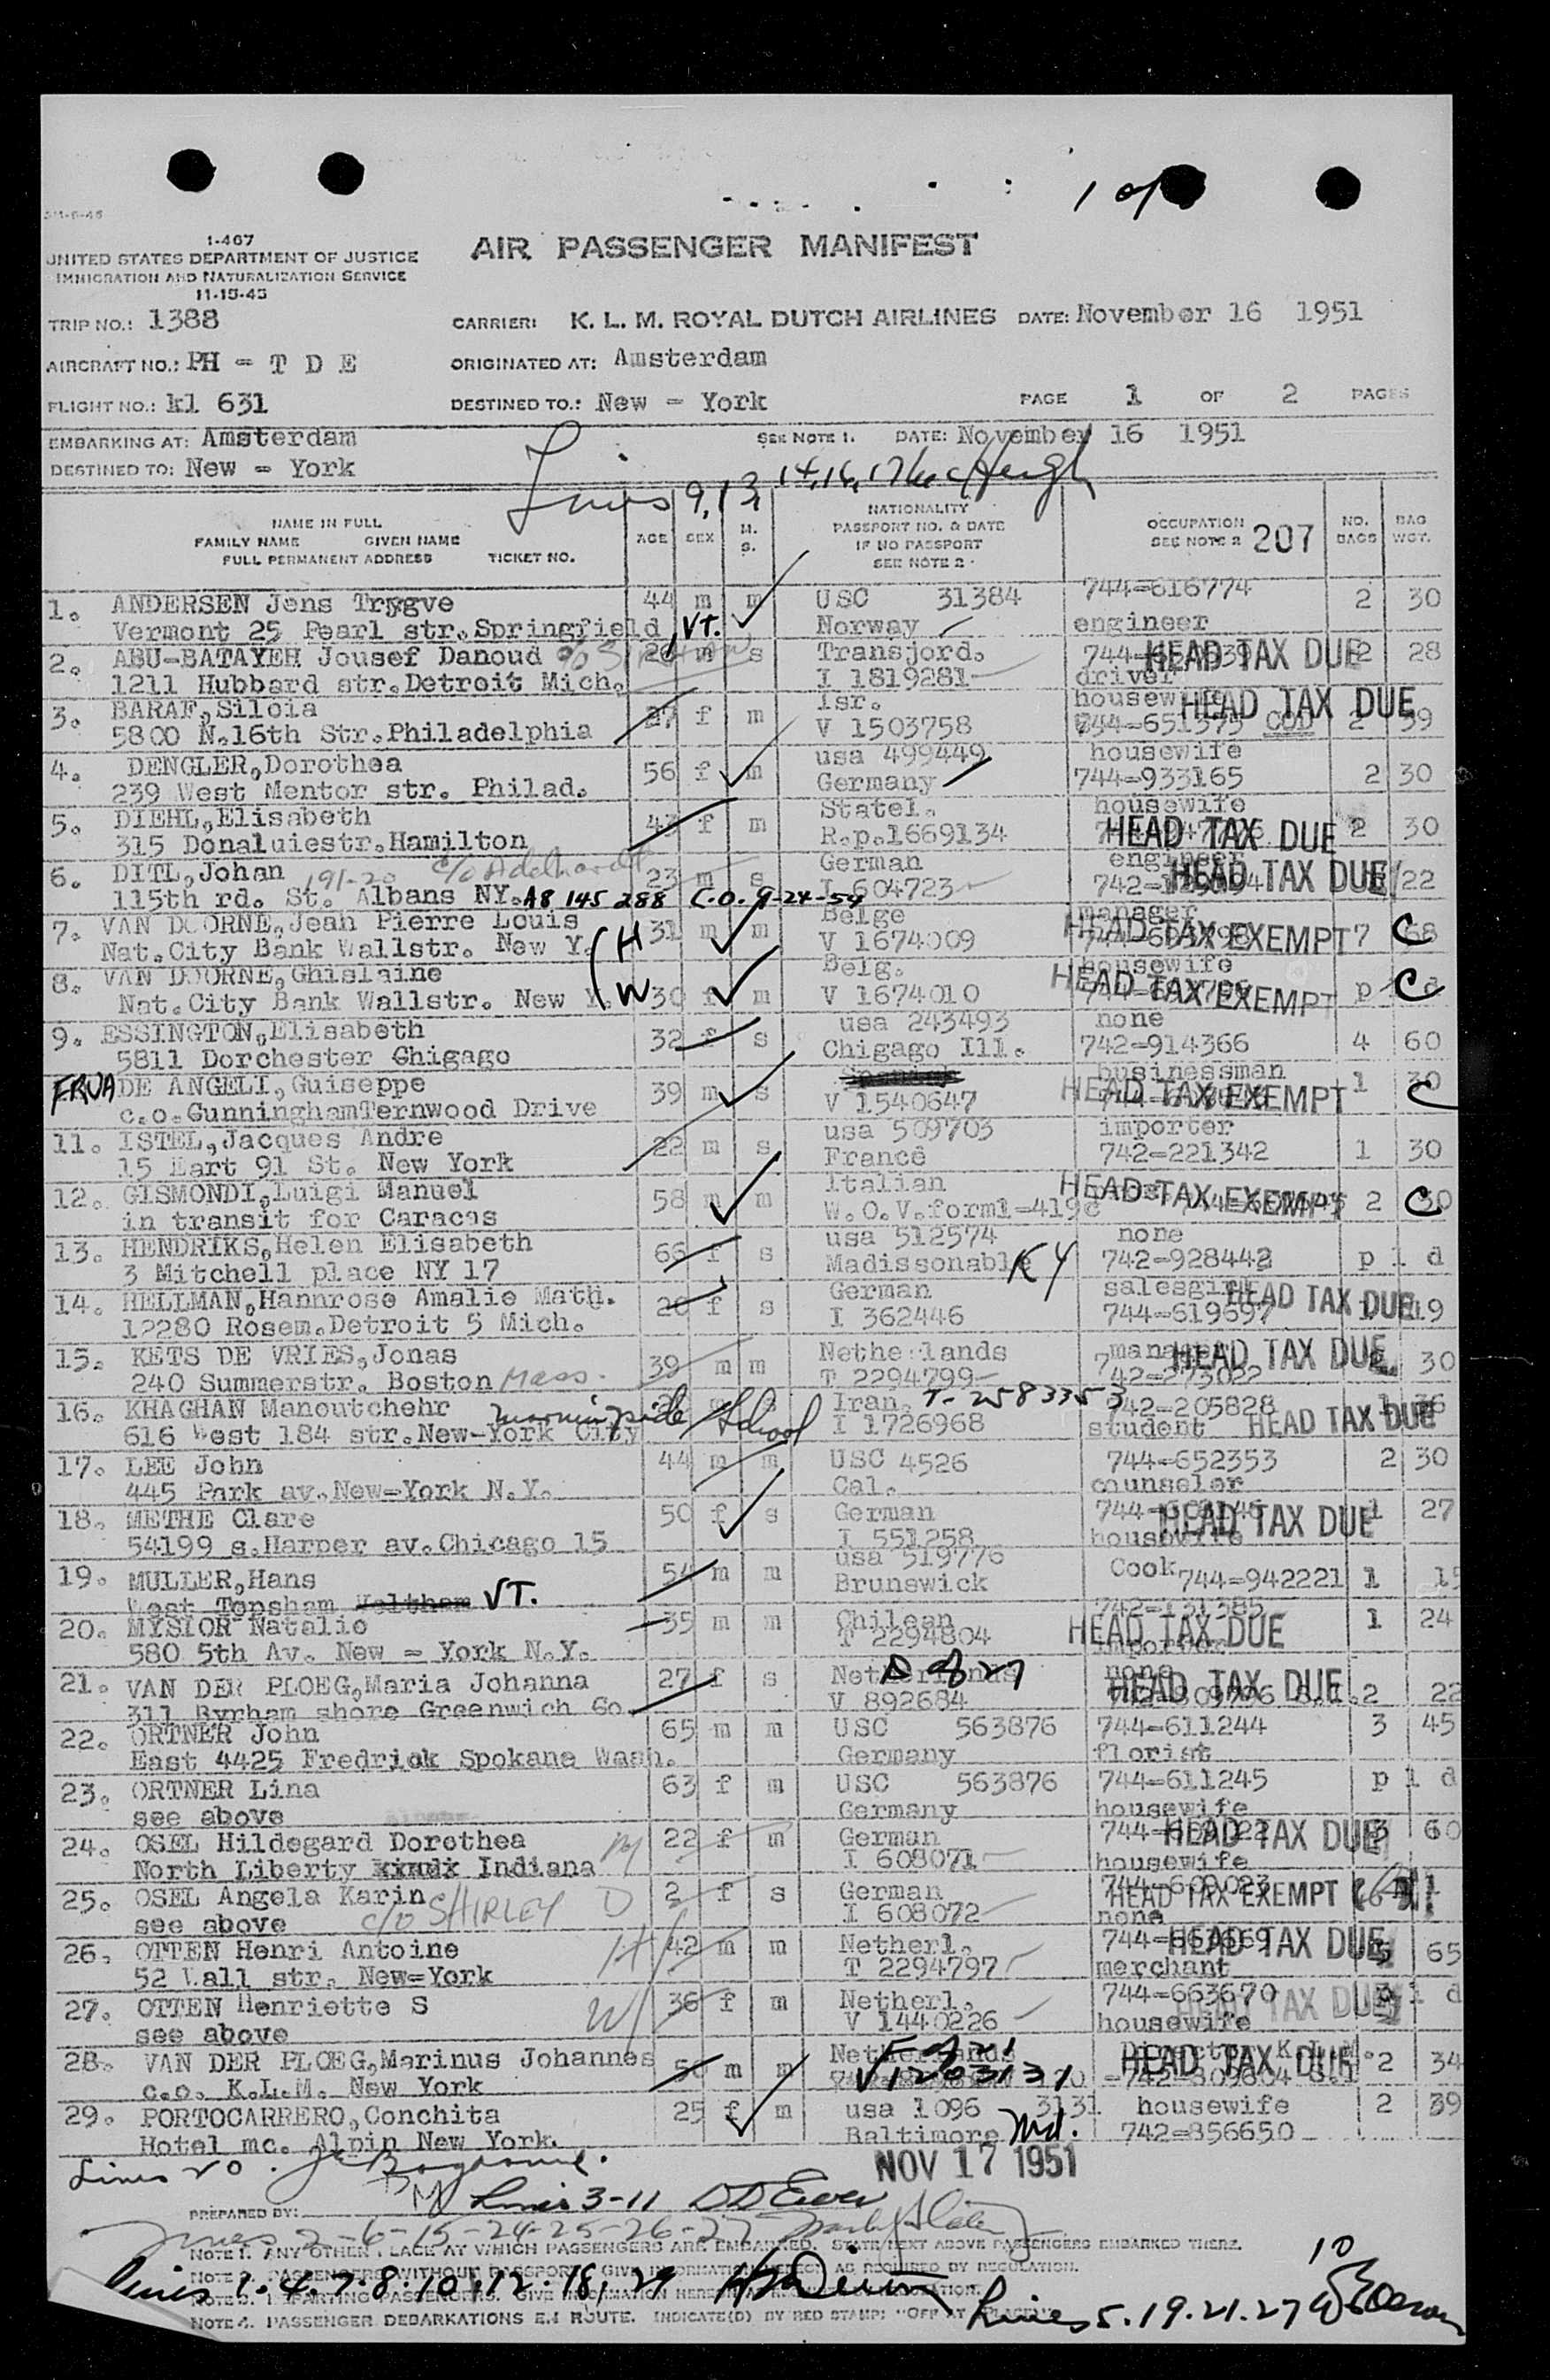 1 of
I-467
UNITED STATES DEPARTMENT OF JUSTICE
IMMIGRATION AND NATURALIZATION SERVICE
11-15-45
AIR PASSENGER MANIFEST
TRIP NO.: 1388
CARRIER: K. L. M. ROYAL DUTCH AIRLINES DATE: November 16 1951
AIRCRAFT NO.: PH - T D E
ORIGINATED AT: Amsterdam
FLIGHT NO.: kl 631
DESTINED TO.: New - York
PAGE 1 OF 2 PAGES
EMBARKING AT: Amsterdam
SEE NOTE 1. DATE: November 16 1951
DESTINED TO: New - York
Lines 9, 13, 14, 16, 17
NAME IN FULL
FAMILY NAME GIVEN NAME
FULL PERMANENT ADDRESS TICKET NO.
AGE SEX M. S.
NATIONALITY
PASSPORT NO. & DATE
IF NO PASSPORT
SEE NOTE 2
OCCUPATION
SEE NOTE 2 207
NO. BAGS
BAG WGT.
1. ANDERSEN Jens Trygve 44 m m USC 31384 744-616774 2 30
Vermont 25 Pearl str. Springfield, VT. Norway engineer
2. ABU-BATAYEH Jousef Danoud m s Transjord. HEAD TAX DUE 2 28
1211 Hubbard str. Detroit Mich. I 1819281 driver
3. BARAF, Siloia 27 f m Isr. housewife HEAD TAX DUE
5800 N.16th Str. Philadelphia V 1503758 744-651375 COD 2 39
4. DENGLER, Dorothea 56 f m usa 499449 housewife
239 West Mentor str. Philad. Germany 744-933165 2 30
5. DIEHL, Elisabeth 43 f m Statel. housewife
315 Donaluiestr. Hamilton R.p.1669134 HEAD TAX DUE 2 30
6. DITL, Johan 191-20 23 m s German engineer
115th rd. St. Albans NY. A8 145 288 C.O. 9-24-54 I 604723 HEAD TAX DUE 22
7. VAN DOORNE, Jean Pierre Louis H 31 m m Belge manager
Nat. City Bank Wallstr. New Y. V 1674009 HEAD TAX EXEMPT 7 68 C
8. VAN DOORNE, Ghislaine W 30 f m Belg. housewife
Nat. City Bank Wallstr. New Y. V 1674010 HEAD TAX EXEMPT p l d C
9. ESSINGTON, Elisabeth 32 f s usa 243493 none
5811 Dorchester Ghigago Chigago Ill. 742-914366 4 60
FRUA DE ANGELI, Guiseppe 39 m s businessman 1 30
c.o. GunninghamTernwood Drive V 1540647 HEAD TAX EXEMPT C
11. ISTEL, Jacques Andre 22 m s usa 509703 importer
15 Eart 91 St. New York France 742-221342 1 30
12. GISMONDI, Luigi Manuel 58 m m Italian HEAD TAX EXEMPT 2 30 C
in transit for Caracas W.O.V.form1-419c
13. HENDRIKS, Helen Elisabeth 66 f s usa 512574 none
3 Mitchell place NY 17 Madissonable KY 742-928442 p l d
14. HELLMAN, Hannrose Amalie Math. f s German salesgirl HEAD TAX DUE
12280 Rosem. Detroit 5 Mich. I 362446 744-619697 19
15. KETS DE VRIES, Jonas 39 m m Netherlands manager HEAD TAX DUE 30
240 Summerstr. Boston Mass. T 2294799 742-273022
16. KHAGHAN Manoutchehr Iran. T-2583353 742-205828 1 36
616 West 184 str. New-York City Morningside School I 1726968 student HEAD TAX DUE
17. LEE John 44 m m USC 4526 744-652353 2 30
445 Park av. New-York N.Y. Cal. counseler
18. METHE Clare 50 f s German HEAD TAX DUE 1 27
54199 s. Harper av. Chicago 15 I 551258 housewife
19. MULLER, Hans 54 m m usa 519776 Cook 744-942221 1 15
West Topsham VT. Brunswick
20. MYSIOR Natalio 35 m m Chilean 742-131385 1 24
580 5th Av. New - York N.Y. T 2294804 HEAD TAX DUE importer
21. VAN DER PLOEG, Maria Johanna 27 f s Netherlands none HEAD TAX DUE
311 Byrham shore Greenwich Co. V 892684 2 22
22. ORTNER John 65 m m USC 563876 744-611244 3 45
East 4425 Fredrick Spokane Wash. Germany florist
23. ORTNER Lina 63 f m USC 563876 744-611245 p l d
see above Germany housewife
24. OSEL Hildegard Dorothea M 22 f m German HEAD TAX DUE 3 60
North Liberty Indiana I 608071 housewife
25. OSEL Angela Karin D 2 f s German HEAD TAX EXEMPT
see above c/o SHIRLEY I 608072 none
26. OTTEN Henri Antoine H 42 m m Netherl. HEAD TAX DUE 65
52 Wall str. New-York T 2294797 merchant
27. OTTEN Henriette S W 36 f m Netherl. 744-663670 p l d
see above V 1440226 housewife HEAD TAX DUE
28. VAN DER PLOEG, Marinus Johannes 50 m m Netherlands HEAD TAX DUE 2 34
c.o. K.L.M. New York
29. PORTOCARRERO, Conchita 25 f m usa 1096 3131 housewife 2 39
Hotel mc. Alpin New York. Baltimore Md. 742-856650
Lines 20.
NOV 17 1951
PREPARED BY: Lines 3-11
Lines 2-6-15-24-25-26-27
NOTE 1. ANY OTHER PLACE AT WHICH PASSENGERS ARE EMBARKED. STATE NEXT ABOVE PASSENGERS EMBARKED THERE.
Lines 1.4.7.8.10.12.18, 29
Lines 5.19.21.27
NOTE 4. PASSENGER DEBARKATIONS EN ROUTE. INDICATE(D) BY RED STAMP: "OFF AT